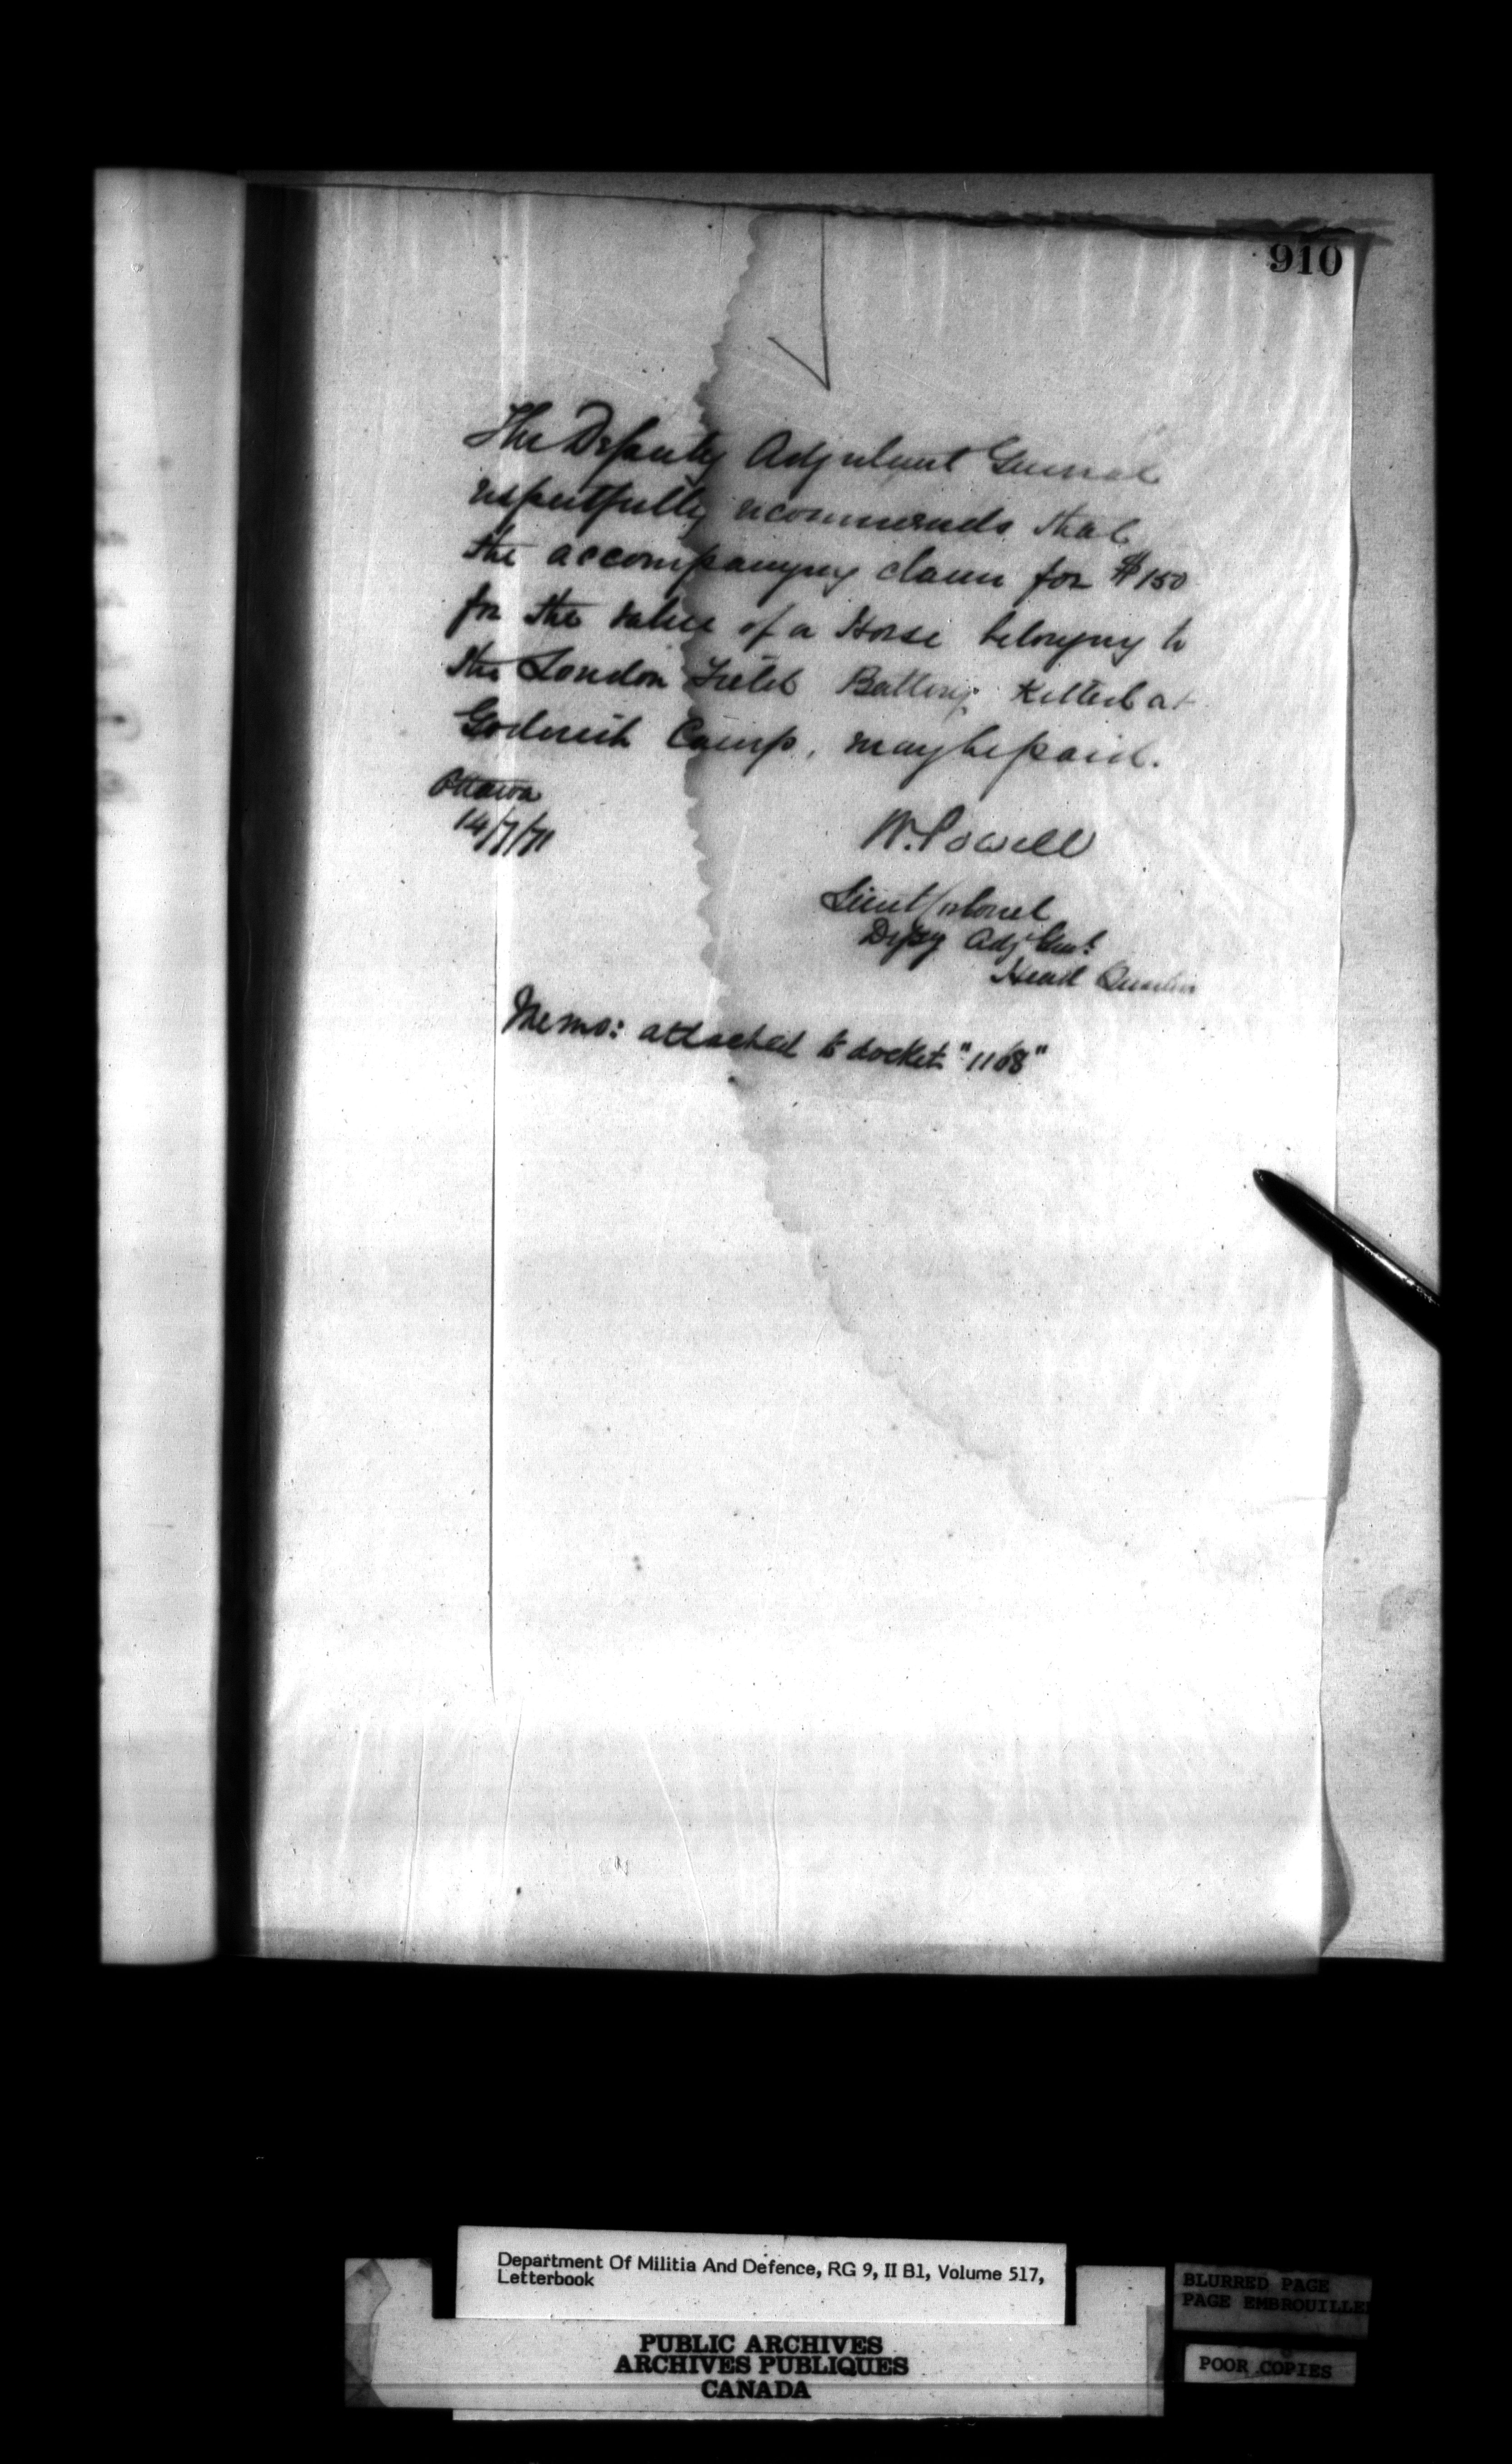 910
The Deputy Adjutant General
respectfully recommends that
the accompanying claim for $150
for the value of a Horse belonging to
the London Field Battery killed at
Goderich Camp, may be paid.
Ottawa
14/7/71
W. Powell
Lieut Colonel
Depy Adjt Genl.
Head Quarters
Memo: attached to docket "1168"
Department Of Militia And Defence, RG 9, II B1, Volume 517,
Letterbook
PUBLIC ARCHIVES
ARCHIVES PUBLIQUES
CANADA
BLURRED PAGE
PAGE EMBROUILLEE
POOR COPIES